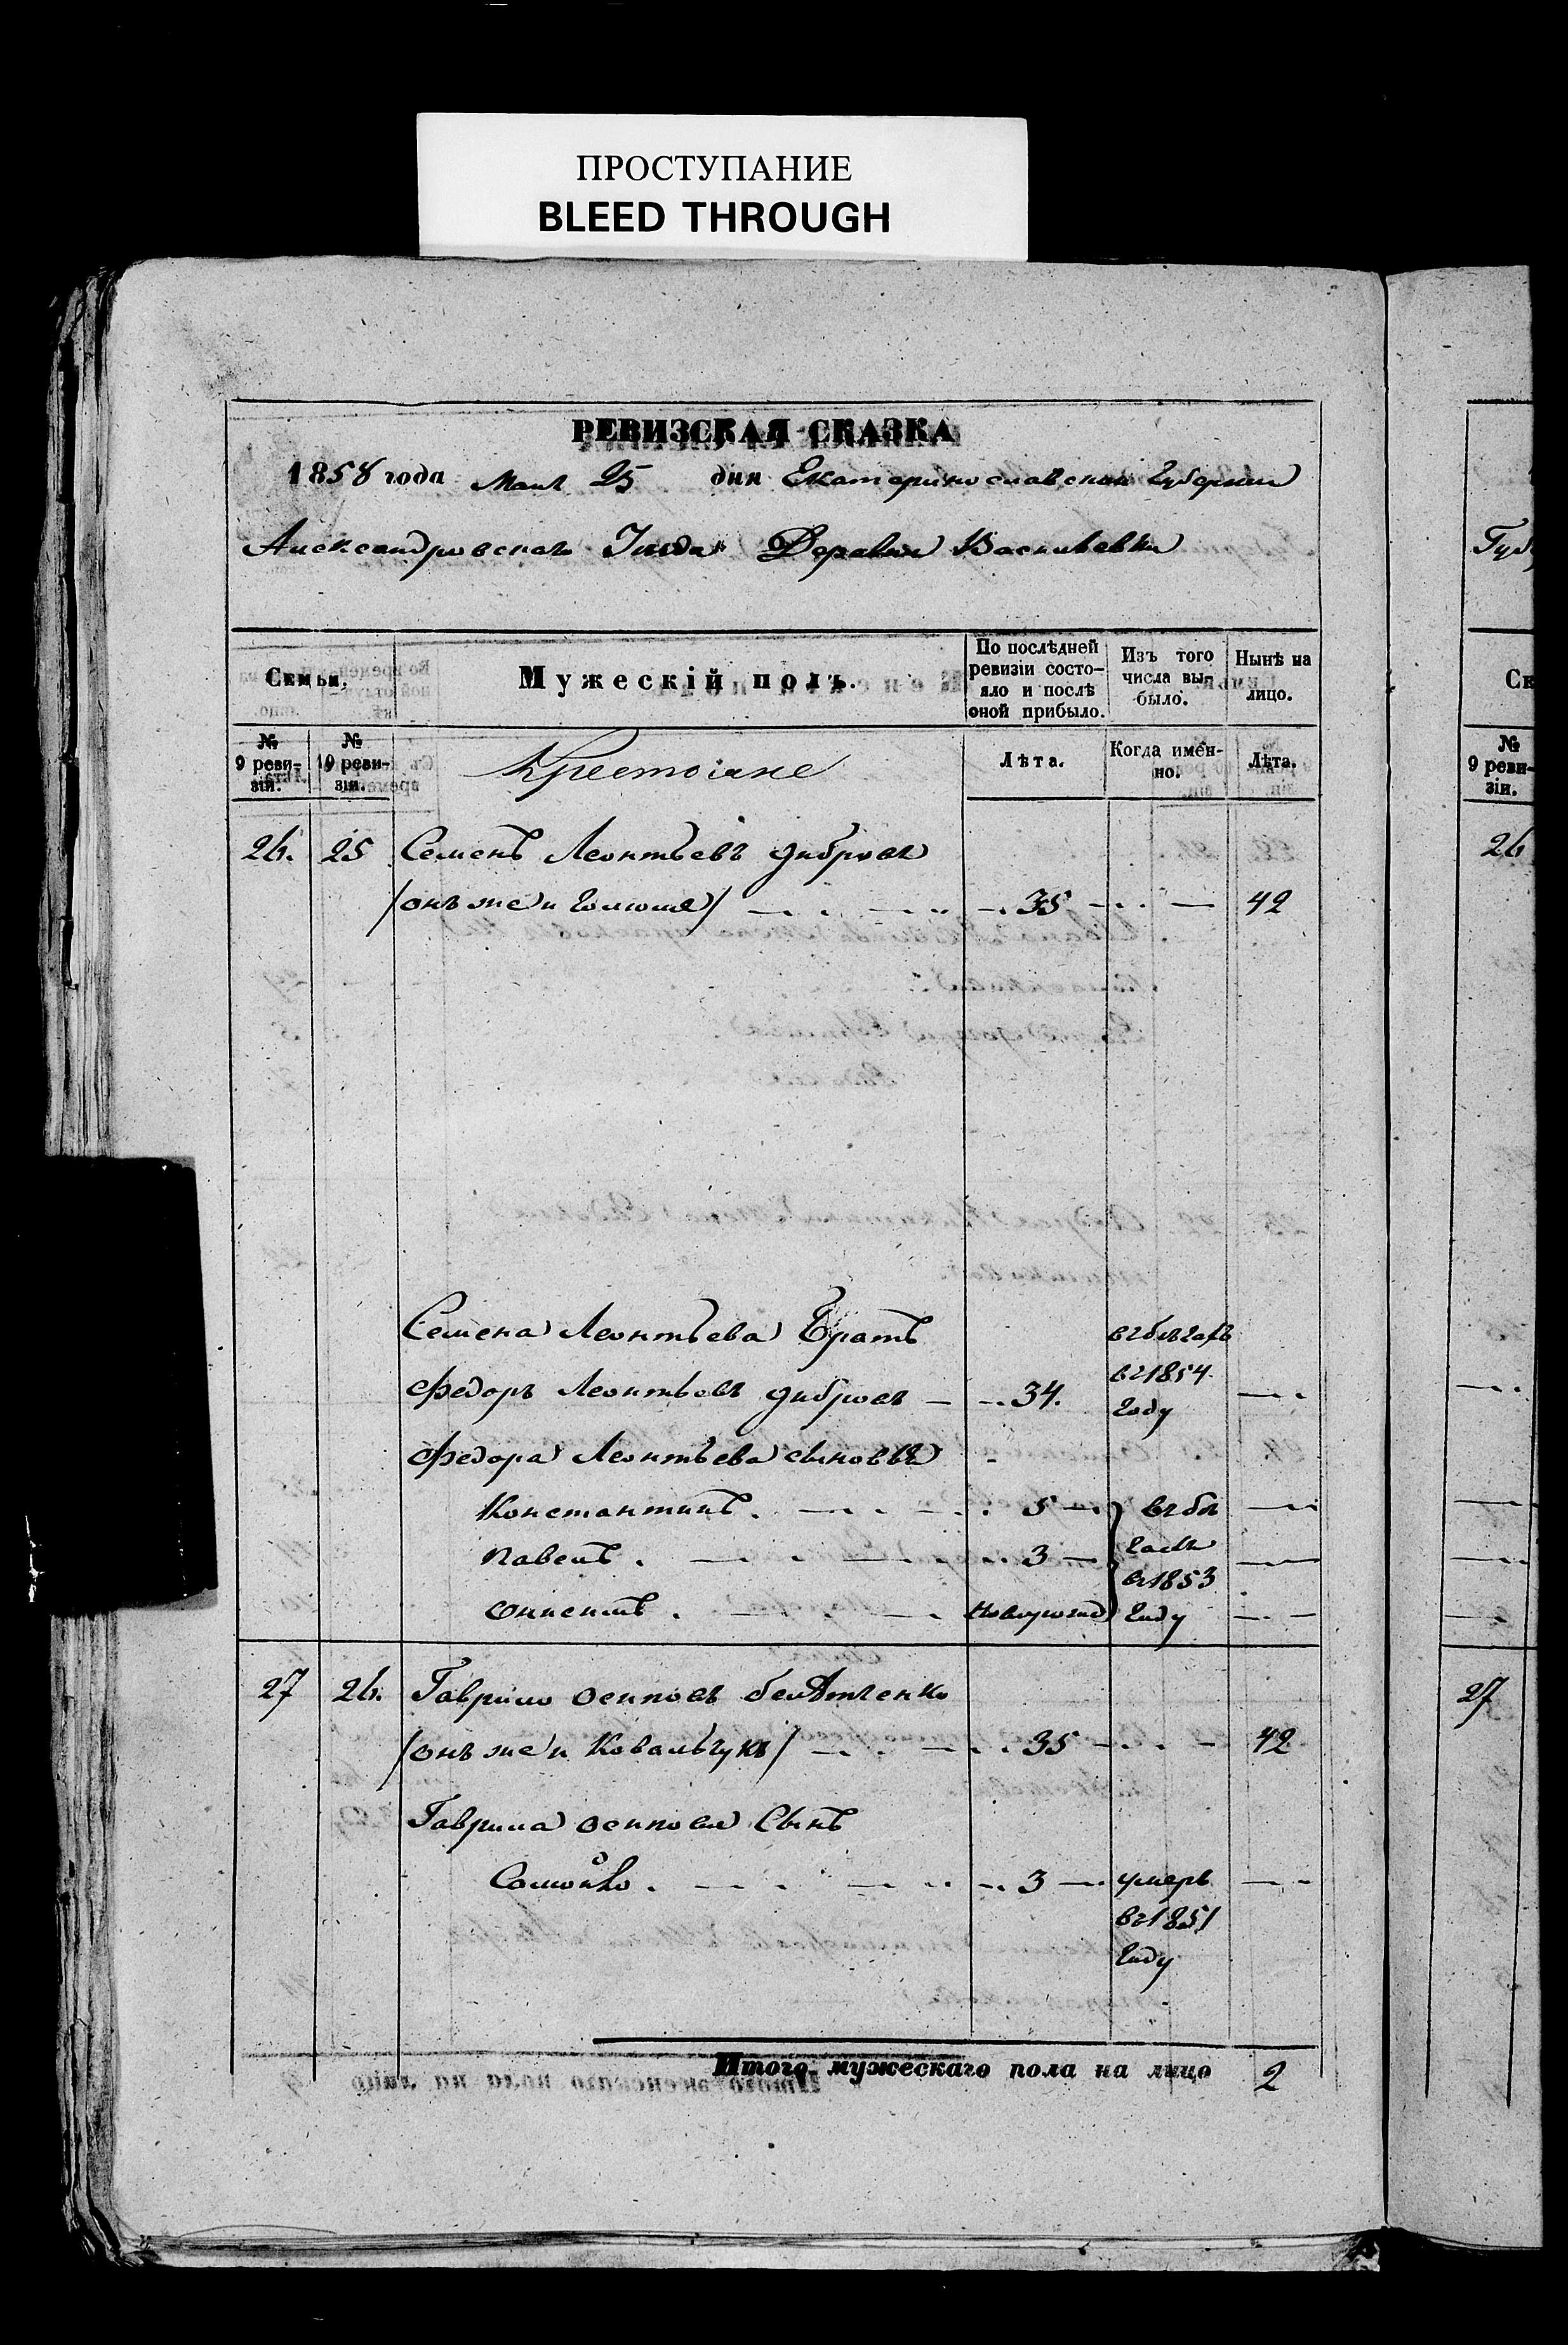 ПРОСТУПАНИЕ
BLEED THROUGH
РЕВИЗСКАЯ СКАЗКА
1858 года Мая 25 дня Екатеринославской Губернии
Александровскаго Уезда Деревни Васильевки
Семьи.
Мужескій полъ.
По послѣдней ревизіи состо-
яло и послѣ
оной прибыло.
Изъ того
числа вы-
было.
Нынѣ на
лицо.
№
9 реви-
зіи.
№
10 реви-
зіи.
Крестьяне
Лѣта.
Когда имен-
но.
Лѣта.
26. 25 Семенъ Леонтьевъ дибровъ
/онъ же и / 35 42
Семена Леонтьева Братъ
федоръ Леонтьевъ дибровъ 34. въ бѣгахъ въ 1854 году
федора Леонтьева сыновья
Константинъ. 5
Павелъ. 3
новорожд
въ бѣ
гахъ
въ 1853
году
27 26. Гаврило осиповъ
/онъ же и Ковальчукъ/ 35 42
Гаврила осипова Сынъ
Самойло. 3 умеръ
въ 1851
году
Итого мужескаго пола на лицо 2
Губ
Се
№
9 реви-
зіи.
26
27